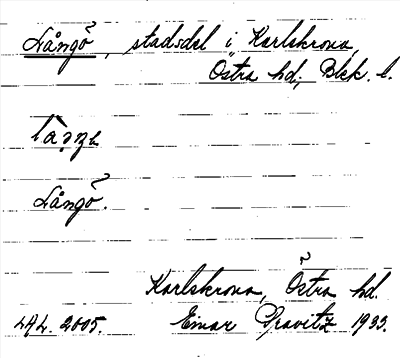 Långö, stadsdel i Karlskrona,
Östra hd; Blek. l.
Långö.
Karlskrona, Östra hd.
2005. Einar Pravitz 1933.